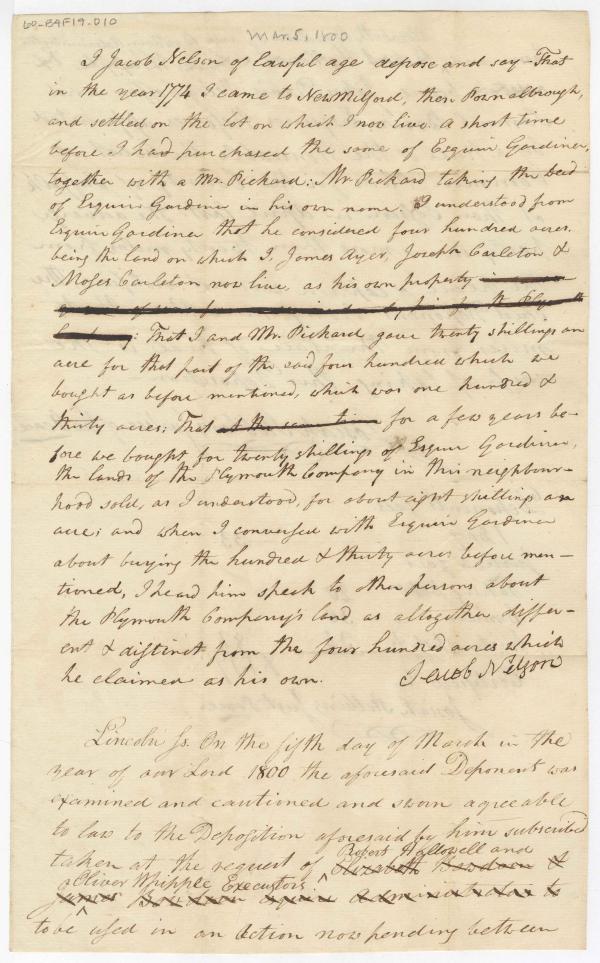 60-B4F19.010
Mar. 5, 1800
I Jacob Nelson of lawful age depose and say - That
in the year 1774 I came to New Milford, then Pownalbrough,
and settled on the lot on which I now live. A short time
before I had purchased the same of Esquire Gardiner,
together with a Mr. Pickard: Mr. Pickard taking the deed
of Esquire Gardiner in his own name. I understood from
Esquire Gardiner that he considered four hundred acres,
being the land on which I, James Ayer, Joseph Carleton &
Moses Carleton now live, as his own property
: That I and Mr. Pickard gave twenty shillings an
acre for that part of the said four hundred which we
bought as before mentioned, which was one hundred &
thirty acres; That at the same time for a few years be-
fore we bought for twenty shillings of Esquire Gardiner,
the lands of the Plymouth Company in this neighbour-
hood sold, as I understood, for about eight shillings an
acre; and when I conversed with Esquire Gardiner
about buying the hundred & thirty acres before men-
tioned, I heard him speak to other persons about
the Plymouth Company's land as altogether differ-
ent & distinct from the four hundred acres which
he claimed as his own. Jacob Nelson
Lincoln ss. On the fifth day of March in the
year of our Lord 1800 the aforesaid Deponent was
examined and cautioned and sworn agreeable
to law to the Deposition aforesaid by him subscribed
Robert Hallowell and
taken at the request of Elizabeth Bowdoin &
Oliver Whipple Executors
James Bowdoin Administrator to
to be used in an Action now pending between